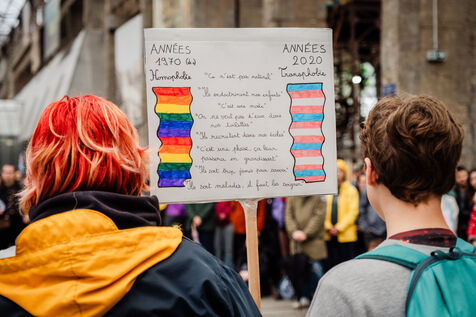 ANNÉES
1970 (4)
Homophobie
ANNÉES
2020
Transphobie
"Ce n'est pas naturel"
"Ils endoctrinent nos enfants"
"C'est une mode"
"On ne veut pas d'eux dans nos toilettes"
"Ils recrutent dans nos écoles"
"C'est une phase, ça leur
passera en grandissant"
"Ils sont trop jeunes pour savoir"
"Ils sont malades, il faut les soigner"